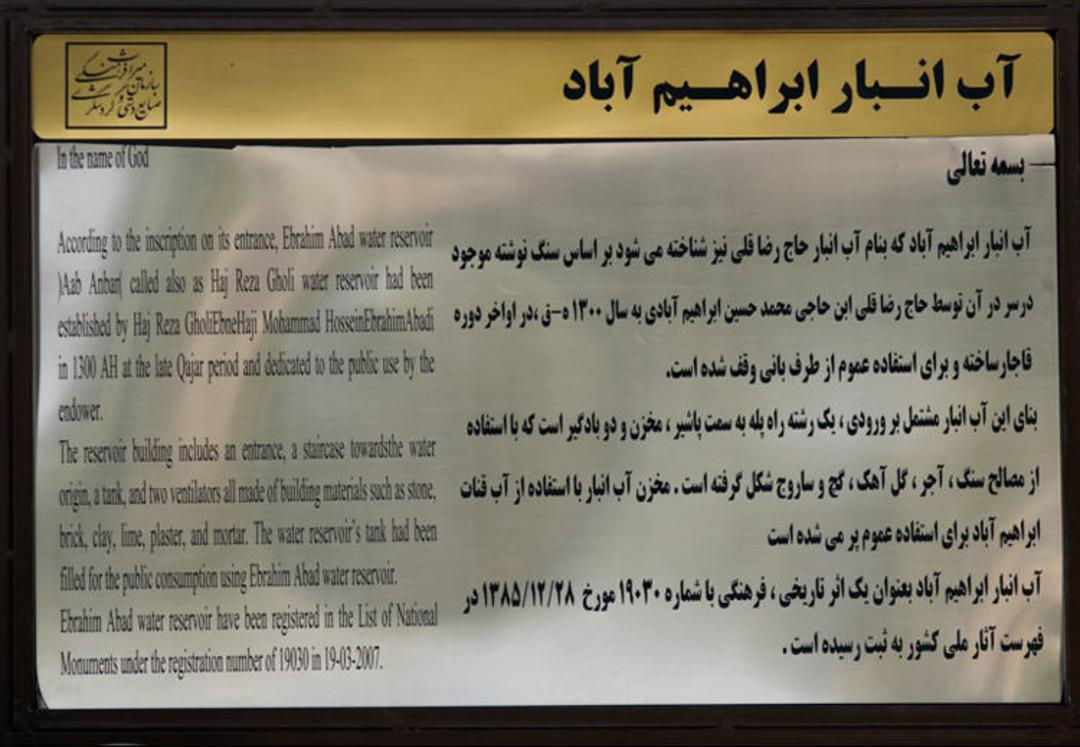 آب انبار ابراهیم آباد
سازمان میراث فرهنگی
صنایع دستی و گردشگری
بسمه تعالی
آب انبار ابراهیم آباد که بنام آب انبار حاج رضا قلی نیز شناخته می شود بر اساس سنگ نوشته موجود
درسر در آن توسط حاج رضا قلی ابن حاجی محمد حسین ابراهیم آبادی به سال ۱۳۰۰ ه-ق ،در اواخر دوره
قاجارساخته و برای استفاده عموم از طرف بانی وقف شده است.
بنای این آب انبار مشتمل بر ورودی ، یک رشته راه پله به سمت پاشیر ، مخزن و دو بادگیر است که با استفاده
از مصالح سنگ ، آجر ، گل آهک ، گچ و ساروج شکل گرفته است . مخزن آب انبار با استفاده از آب قنات
ابراهیم آباد برای استفاده عموم پر می شده است
آب انبار ابراهیم آباد بعنوان یک اثر تاریخی ، فرهنگی با شماره ۱۹۰۳۰ مورخ ۱۳۸۵/۱۲/۲۸ در
فهرست آثار ملی کشور به ثبت رسیده است .
In the name of God
According to the inscription on its entrance, Ebrahim Abad water reservoir
)Aab Anbar( called also as Haj Reza Gholi water reservoir had been
established by Haj Reza GholiEbneHaji Mohammad HosseinEbrahimAbadi
in 1300 AH at the late Qajar period and dedicated to the public use by the
endower.
The reservoir building includes an entrance, a staircase towardsthe water
origin, a tank, and two ventilators all made of building materials such as stone,
brick, clay, lime, plaster, and mortar. The water reservoir's tank had been
filled for the public consumption using Ebrahim Abad water reservoir.
Ebrahim Abad water reservoir have been registered in the List of National
Monuments under the registration number of 19030 in 19-03-2007.